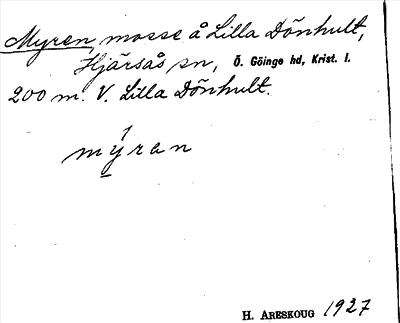 Myren, mosse å Lilla Dönhult,
Hjärsås sn, Ö. Göinge hd, Krist. l.
200 m. V. Lilla Dönhult.
mýran
H. ARESKOUG 1927